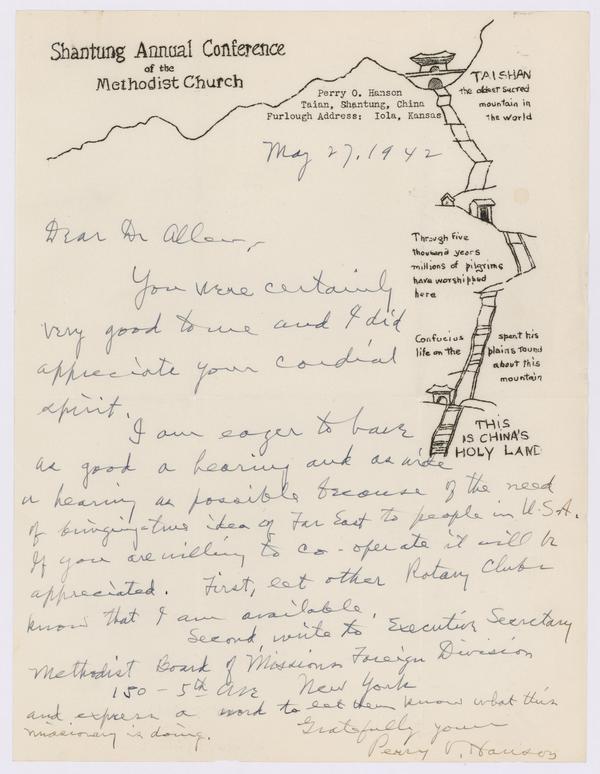 Shantung Annual Conference
of the
Methodist Church
Perry O. Hanson
Taian, Shantung, China
Furlough Address: Iola, Kansas
TAISHAN
the oldest sacred
mountain in
the world
May 27, 1942
Through five
thousand years
millions of pilgrims
have worshipped
here
Confucius spent his
life on the plains round
about this
mountain
THIS
IS CHINA'S
HOLY LAND
Dear Dr Allen,
You were certainly
very good to me and I did
appreciate your cordial
spirit.
I am eager to have
as good a hearing and as wide
a hearing as possible because of the need
of bringing true idea of Far East to people in U.S.A.
If you are willing to co-operate it will be
appreciated. First, let other Rotary Clubs
know that I am available.
Second, write to Executive Secretary
Methodist Board of Missions Foreign Division
150 - 5th Ave New York
and express a word to let them know what this
missionary is doing.
Gratefully yours
Perry O. Hanson